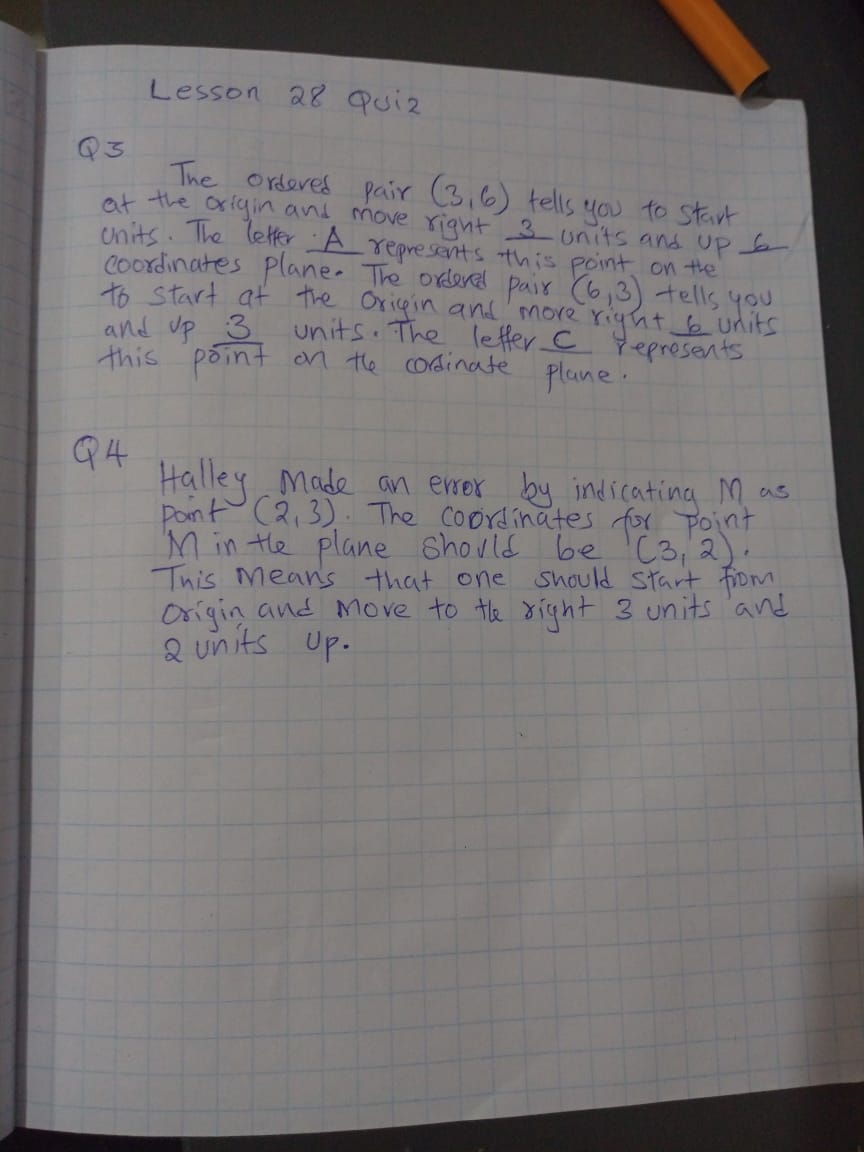 Lesson 28 Quiz
Q3
The ordered pair (3,6) tells you to start
at the origin and move right 3 units and up 6
units. The letter A represents this point on the
coordinates plane. The ordered pair (6,3) tells you
to start at the origin and more right 6 units
and up 3 units. The letter C represents
this point on the cordinate plane.
Q4
Halley Made an error by indicating M as
point (2,3). The coordinates for point
M in the plane should be (3,2).
This means that one should start from
origin and move to the right 3 units and
2 units up.